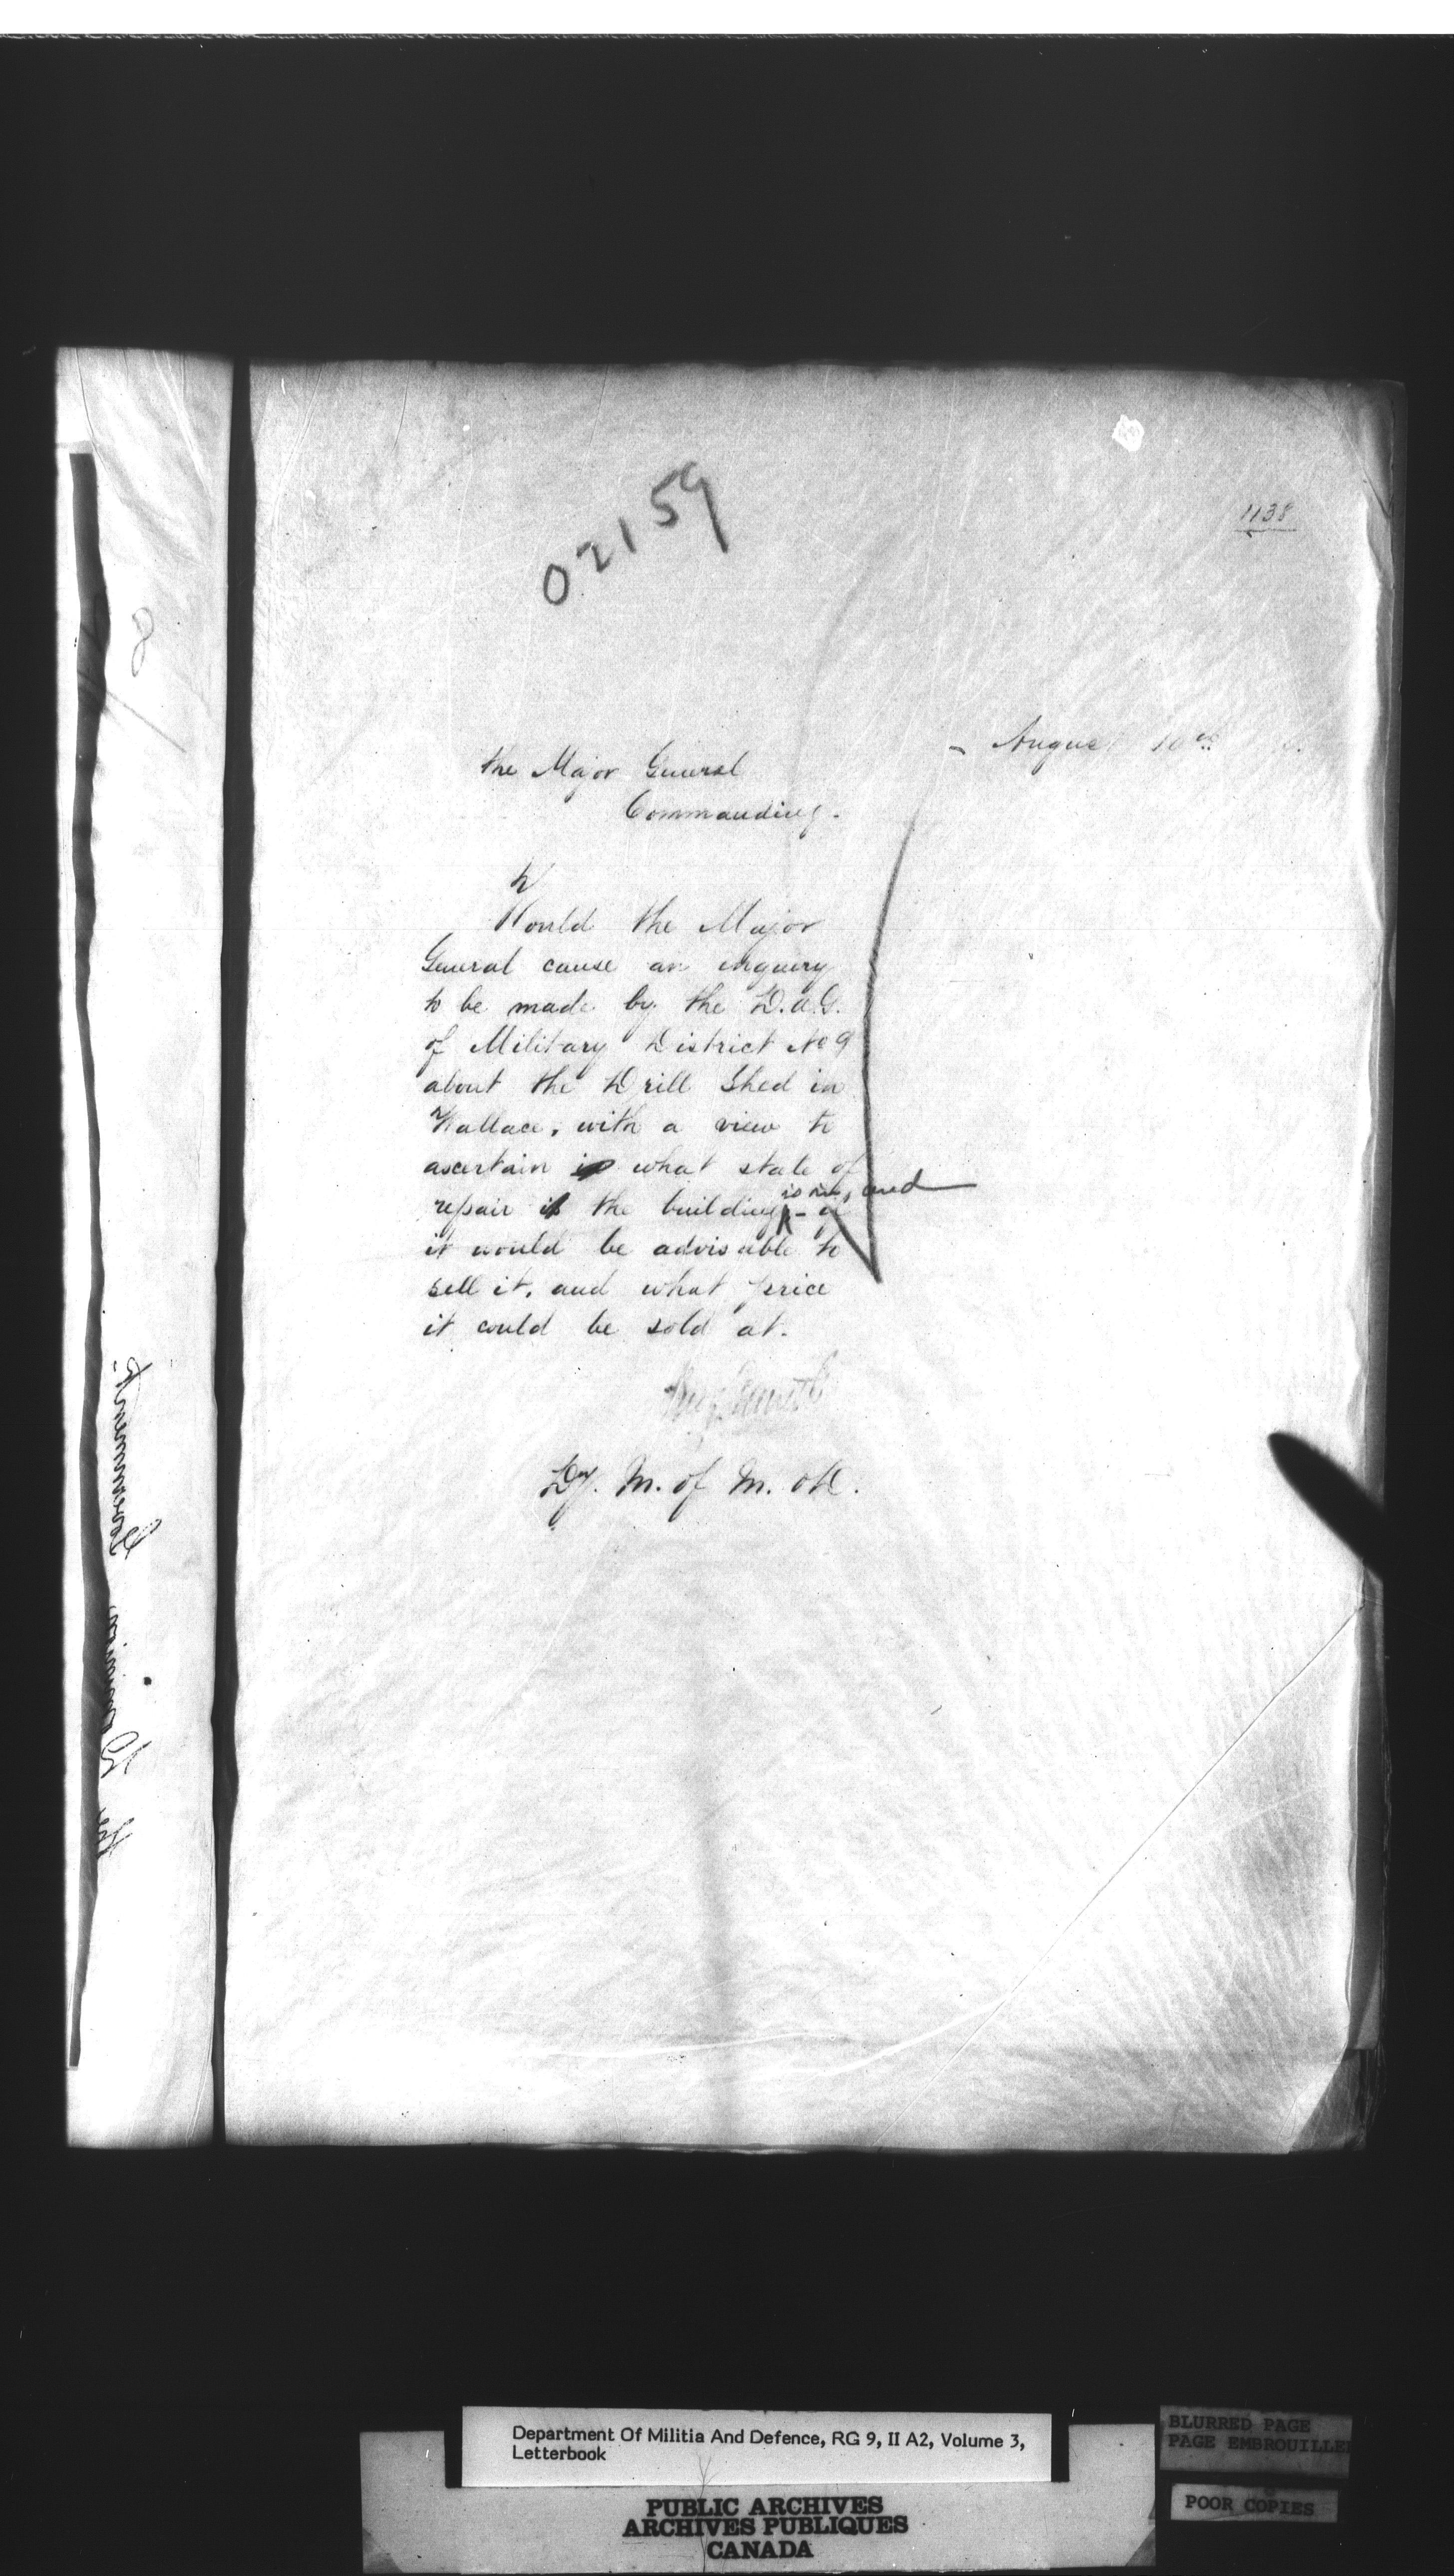 02159
1138
August 10th
the Major General
Commanding.
Would the Major
General cause an inquiry
to be made by the D.A.G.
of Military District No 9
about the Drill Shed in
Wallace, with a view to
ascertain in what state of
repair is the building is in, and
if
it would be advisable to
sell it, and what price
it could be sold at.
Dy. M. of M. & D.
the Dominion Government
8
Department Of Militia And Defence, RG 9, II A2, Volume 3,
Letterbook
PUBLIC ARCHIVES
ARCHIVES PUBLIQUES
CANADA
BLURRED PAGE
PAGE EMBROUILLEE
POOR COPIES